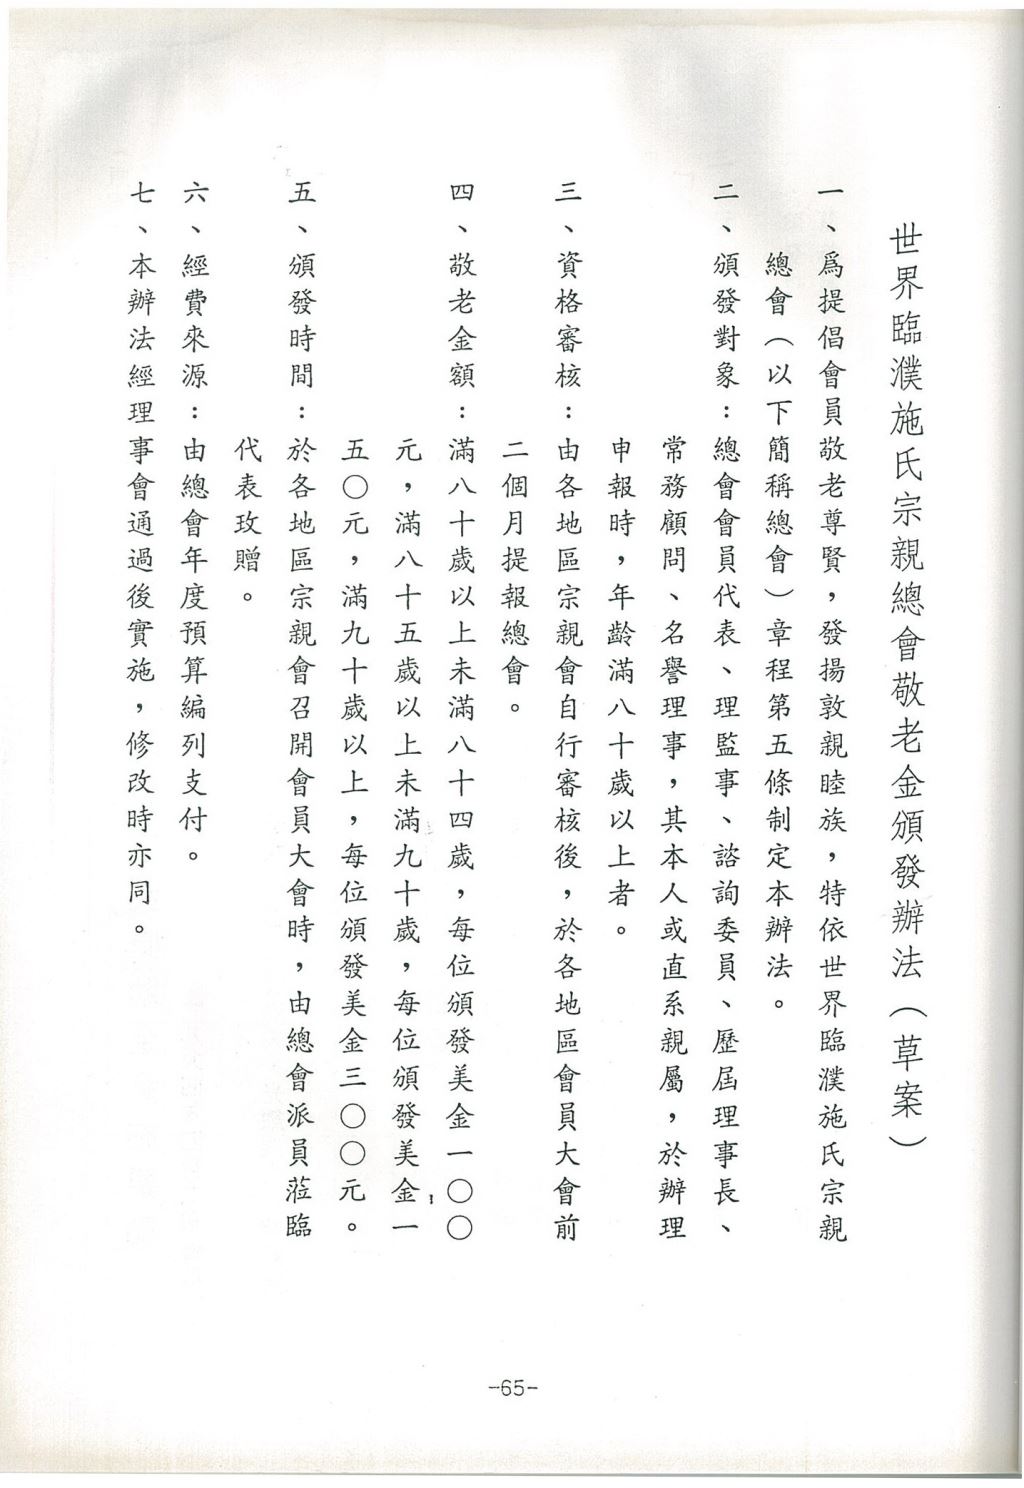 世界臨濮施氏宗親總會敬老金頒發辦法（草案）
一、爲提倡會員敬老尊賢，發揚敦親睦族，特依世界臨濮施氏宗親
總會（以下簡稱總會）章程第五條制定本辦法。
二、頒發對象：總會會員代表、理監事、諮詢委員、歷屆理事長、
常務顧問、名譽理事，其本人或直系親屬，於辦理
申報時，年齡滿八十歲以上者。
三、資格審核：由各地區宗親會自行審核後，於各地區會員大會前
二個月提報總會。
四、敬老金額：滿八十歲以上未滿八十四歲，每位頒發美金一〇〇
元，滿八十五歲以上未滿九十歲，每位頒發美金一
五〇元，滿九十歲以上，每位頒發美金三〇〇元。
五、頒發時間：於各地區宗親會召開會員大會時，由總會派員蒞臨
代表玫贈。
六、經費來源：由總會年度預算編列支付。
七、本辦法經理事會通過後實施，修改時亦同。
-65-